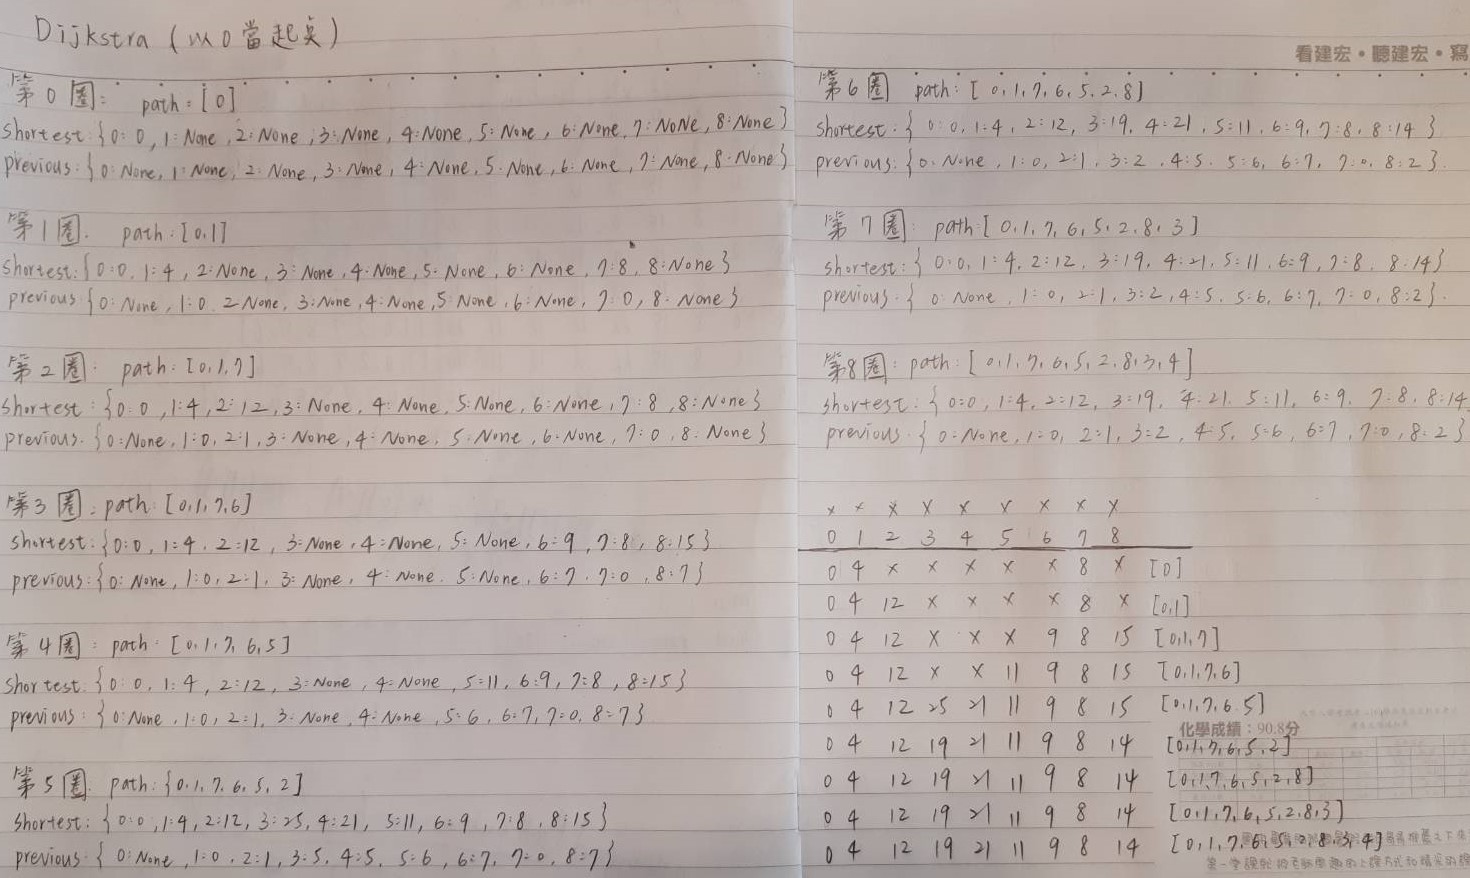 Dijkstra (以0當起點)
第0圈: path:[0]
shortest:{0:0, 1:None, 2:None, 3:None, 4:None, 5:None, 6:None, 7:NoNe, 8:None}
previous:{0:None, 1:None, 2:None, 3:None, 4:None, 5:None, 6:None, 7:None, 8:None}
第1圈. path:[0,1]
shortest:{0:0, 1:4, 2:None, 3:None, 4:None, 5:None, 6:None, 7:8, 8:None}
previous{0:None, 1:0, 2:None, 3:None, 4:None, 5:None, 6:None, 7:0, 8:None}
第2圈: path:[0,1,7]
shortest:{0:0, 1:4, 2:12, 3:None, 4:None, 5:None, 6:None, 7:8, 8:None}
previous:{0:None, 1:0, 2:1, 3:None, 4:None, 5:None, 6:None, 7:0, 8:None}
第3圈: path:[0,1,7,6]
shortest:{0:0, 1:4, 2:12, 3:None, 4:None, 5:None, 6:9, 7:8, 8:15}
previous:{0:None, 1:0, 2:1, 3:None, 4:None, 5:None, 6:7, 7:0, 8:7}
第4圈: path:[0,1,7,6,5]
shortest:{0:0, 1:4, 2:12, 3:None, 4:None, 5:11, 6:9, 7:8, 8:15}
previous:{0:None, 1:0, 2:1, 3:None, 4:None, 5:6, 6:7, 7:0, 8:7}
第5圈: path:{0,1,7,6,5,2]
shortest:{0:0, 1:4, 2:12, 3:25, 4:21, 5:11, 6:9, 7:8, 8:15}
previous:{0:None, 1:0, 2:1, 3:5, 4:5, 5:6, 6:7, 7:0, 8:7}
看建宏・聽建宏・寫
第6圈 path:[0,1,7,6,5,2,8]
shortest:{0:0, 1:4, 2:12, 3:19, 4:21, 5:11, 6:9, 7:8, 8:14}
previous:{0:None, 1:0, 2:1, 3:2, 4:5, 5:6, 6:7, 7:0, 8:2}.
第7圈: path[0,1,7,6,5,2,8,3]
shortest:{0:0, 1:4, 2:12, 3:19, 4:21, 5:11, 6:9, 7:8, 8:14}
previous:{0:None, 1:0, 2:1, 3:2, 4:5, 5:6, 6:7, 7:0, 8:2}.
第8圈: path:[0,1,7,6,5,2,8,3,4]
shortest:{0:0, 1:4, 2:12, 3:19, 4:21, 5:11, 6:9, 7:8, 8:14
previous:{0:None, 1:0, 2:1, 3:2, 4:5, 5:6, 6:7, 7:0, 8:2}
x x x x x x x x x
0 1 2 3 4 5 6 7 8
0 4 x x x x x 8 x [0]
0 4 12 x x x x 8 x [0,1]
0 4 12 x x x 9 8 15 [0,1,7]
0 4 12 x x 11 9 8 15 [0,1,7,6]
0 4 12 25 21 11 9 8 15 [0,1,7,6,5]
化學成績:90.8分
0 4 12 19 21 11 9 8 14 [0,1,7,6,5,2]
0 4 12 19 21 11 9 8 14 [0,1,7,6,5,2,8]
0 4 12 19 21 11 9 8 14 [0,1,7,6,5,2,8,3]
0 4 12 19 21 11 9 8 14 [0,1,7,6,5,2,8,3,4]